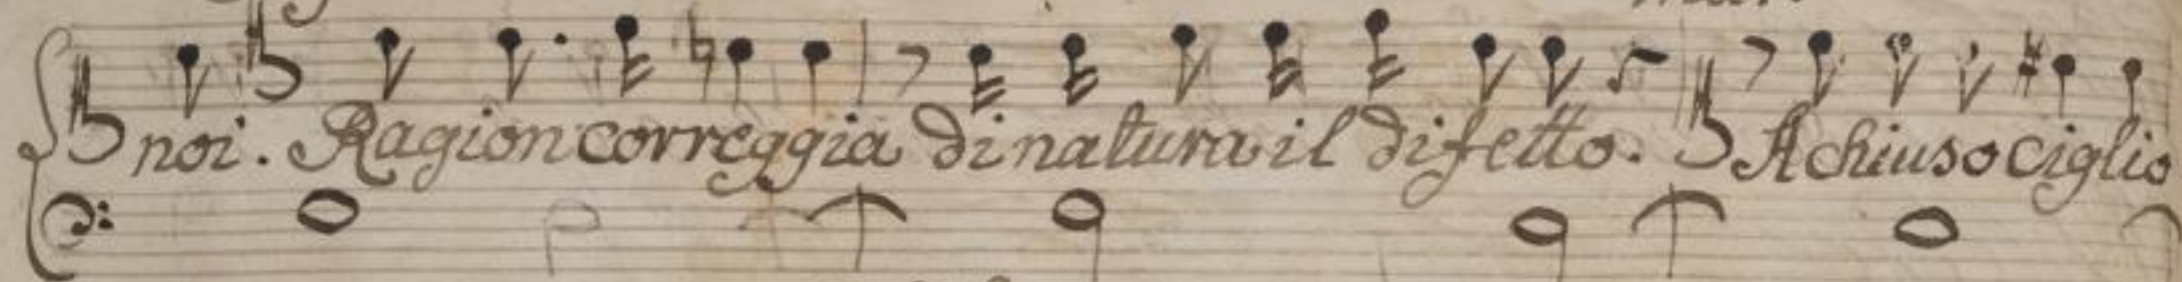 noi. Ragion correggia di natura il difetto. A chiuso ciglio